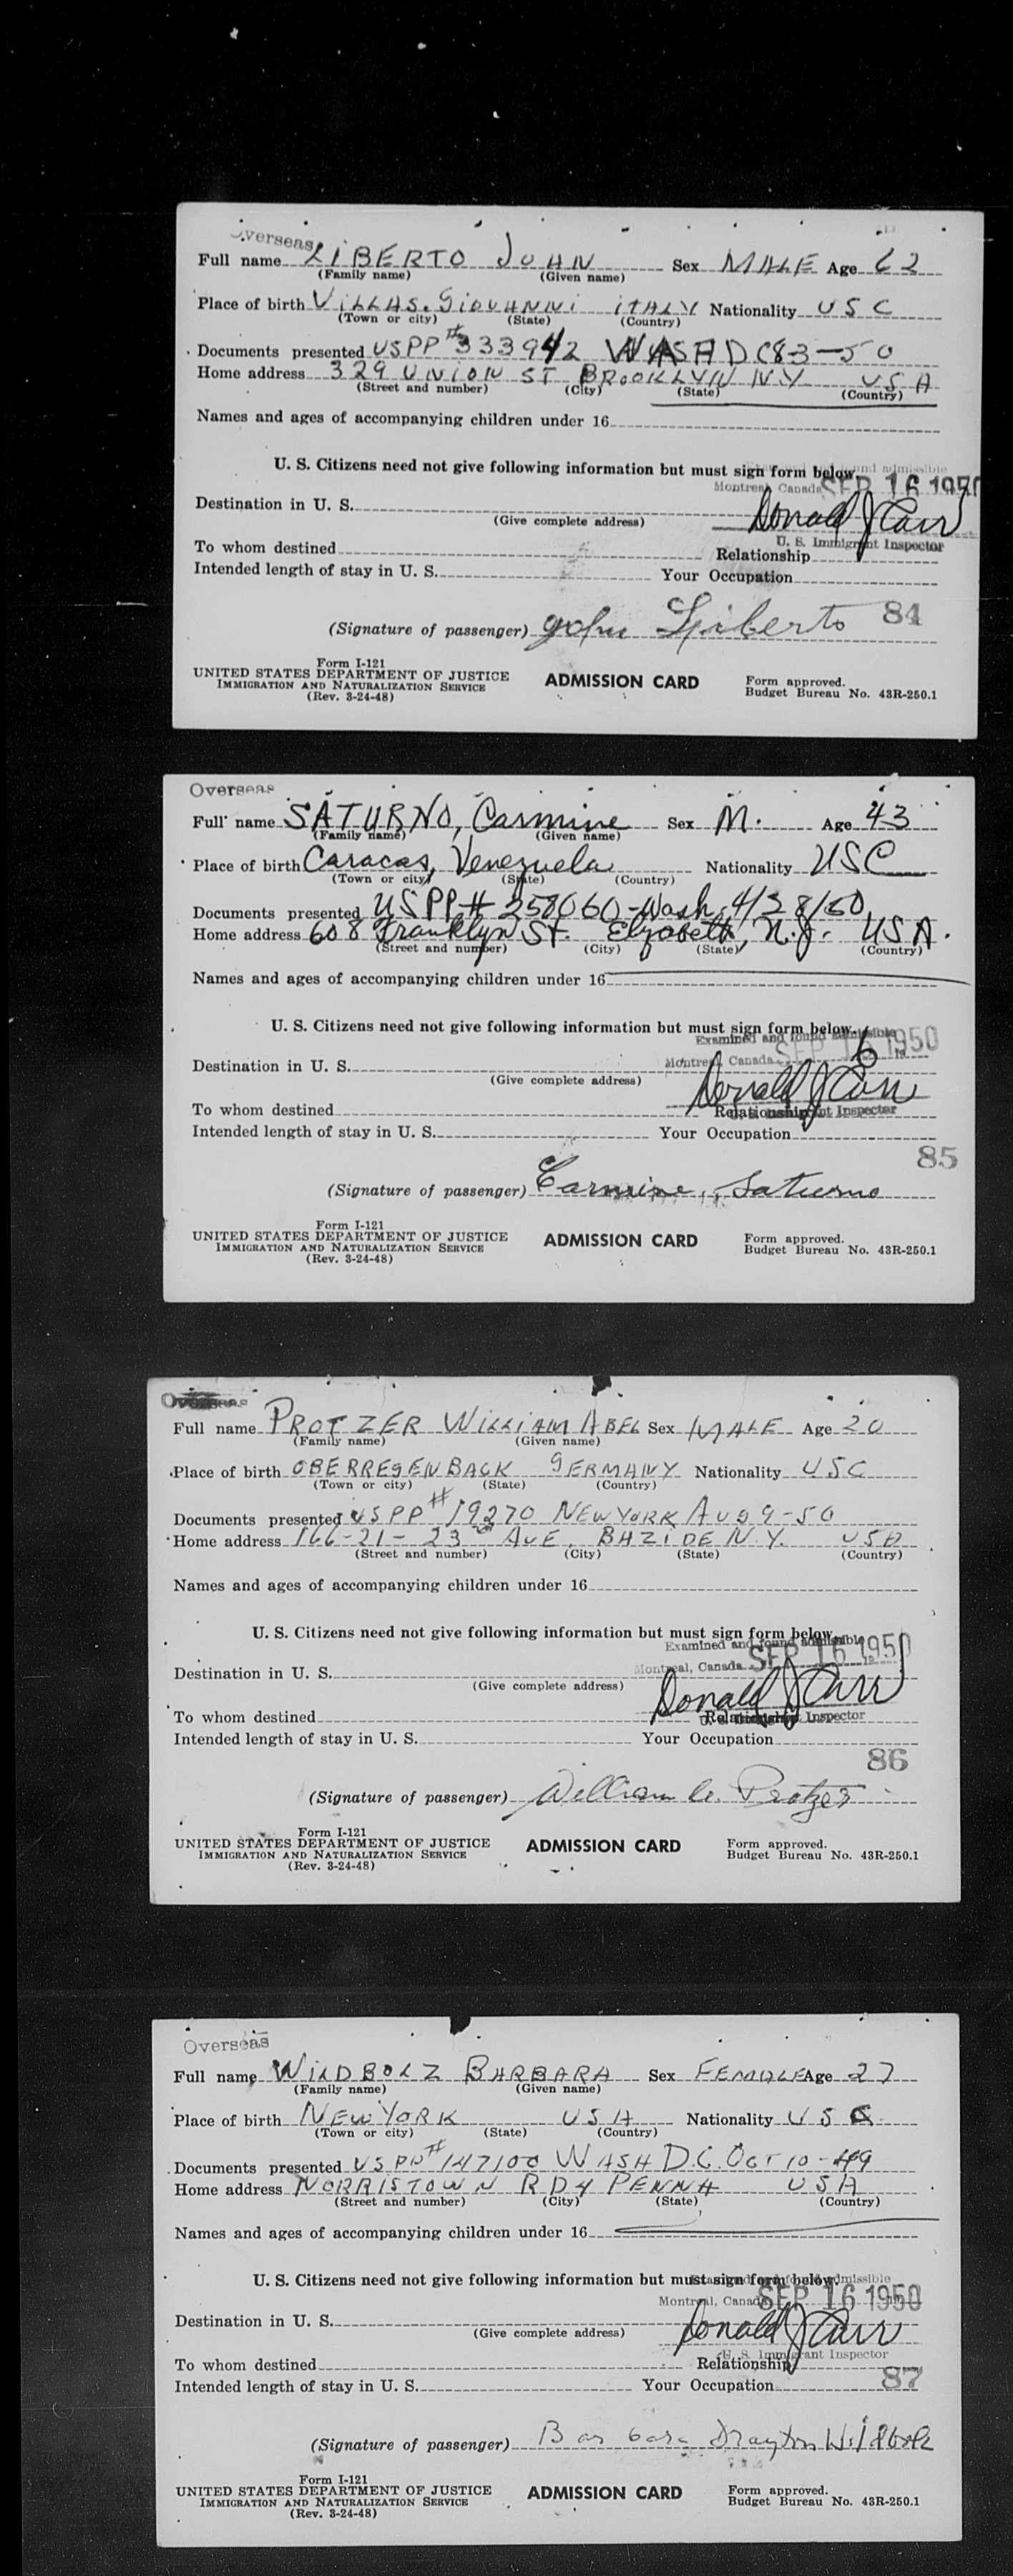 Overseas
Full name LIBERTO JOHN Sex MALE Age 62
(Family name) (Given name)
Place of birth VILLAS. GIOVANNI ITALY Nationality USC
(Town or city) (State) (Country)
Documents presented USPP #333942 WASH DC 83-50
Home address 329 UNION ST BROOKLYN NY USA
(Street and number) (City) (State) (Country)
Names and ages of accompanying children under 16
U. S. Citizens need not give following information but must sign form below.
found admissible
Montreal, Canada SEP 16 1950
Destination in U. S.
(Give complete address)
Donald J Carr
U. S. Immigrant Inspector
To whom destined Relationship
Intended length of stay in U. S. Your Occupation
84
(Signature of passenger) John Liberto
Form I-121
UNITED STATES DEPARTMENT OF JUSTICE ADMISSION CARD Form approved.
IMMIGRATION AND NATURALIZATION SERVICE Budget Bureau No. 43R-250.1
(Rev. 3-24-48)
Overseas
Full name SATURNO, Carmine Sex M. Age 43
(Family name) (Given name)
Place of birth Caracas, Venezuela Nationality USC
(Town or city) (State) (Country)
Documents presented USPP# 258060-Wash. 4/28/50
Home address 608 Franklyn St. Elizabeth, N.J. USA.
(Street and number) (City) (State) (Country)
Names and ages of accompanying children under 16
U. S. Citizens need not give following information but must sign form below.
Examined and found admissible
Montreal, Canada SEP 16 1950
Destination in U. S.
(Give complete address)
Donald J Carr
To whom destined Relationship Inspector
Intended length of stay in U. S. Your Occupation
85
(Signature of passenger) Carmine Saturno
Form I-121
UNITED STATES DEPARTMENT OF JUSTICE ADMISSION CARD Form approved.
IMMIGRATION AND NATURALIZATION SERVICE Budget Bureau No. 43R-250.1
(Rev. 3-24-48)
Overseas
Full name PROTZER WILLIAM ABEL Sex MALE Age 20
(Family name) (Given name)
Place of birth OBERREGENBACK GERMANY Nationality USC
(Town or city) (State) (Country)
Documents presented USPP #19270 NEW YORK AUG 9-50
Home address 166-21-23rd AVE, BAZIDE N.Y. USA
(Street and number) (City) (State) (Country)
Names and ages of accompanying children under 16
U. S. Citizens need not give following information but must sign form below.
Examined and found admissible
Montreal, Canada SEP 16 1950
Destination in U. S.
(Give complete address)
Donald J Carr
To whom destined Relationship Inspector
Intended length of stay in U. S. Your Occupation
86
(Signature of passenger) William A. Protzer
Form I-121
UNITED STATES DEPARTMENT OF JUSTICE ADMISSION CARD Form approved.
IMMIGRATION AND NATURALIZATION SERVICE Budget Bureau No. 43R-250.1
(Rev. 3-24-48)
Overseas
Full name WILDBOLZ BARBARA Sex FEMALE Age 27
(Family name) (Given name)
Place of birth NEW YORK USA Nationality USC
(Town or city) (State) (Country)
Documents presented USPP #147100 WASH D.C. OCT 10-49
Home address NORRISTOWN RD4 PENNA USA
(Street and number) (City) (State) (Country)
Names and ages of accompanying children under 16
U. S. Citizens need not give following information but must sign form below.
admissible
Montreal, Canada SEP 16 1950
Destination in U. S.
(Give complete address)
Donald J Carr
U. S. Immigrant Inspector
To whom destined Relationship
Intended length of stay in U. S. Your Occupation
87
(Signature of passenger) Barbara Drayton Wildbolz
Form I-121
UNITED STATES DEPARTMENT OF JUSTICE ADMISSION CARD Form approved.
IMMIGRATION AND NATURALIZATION SERVICE Budget Bureau No. 43R-250.1
(Rev. 3-24-48)